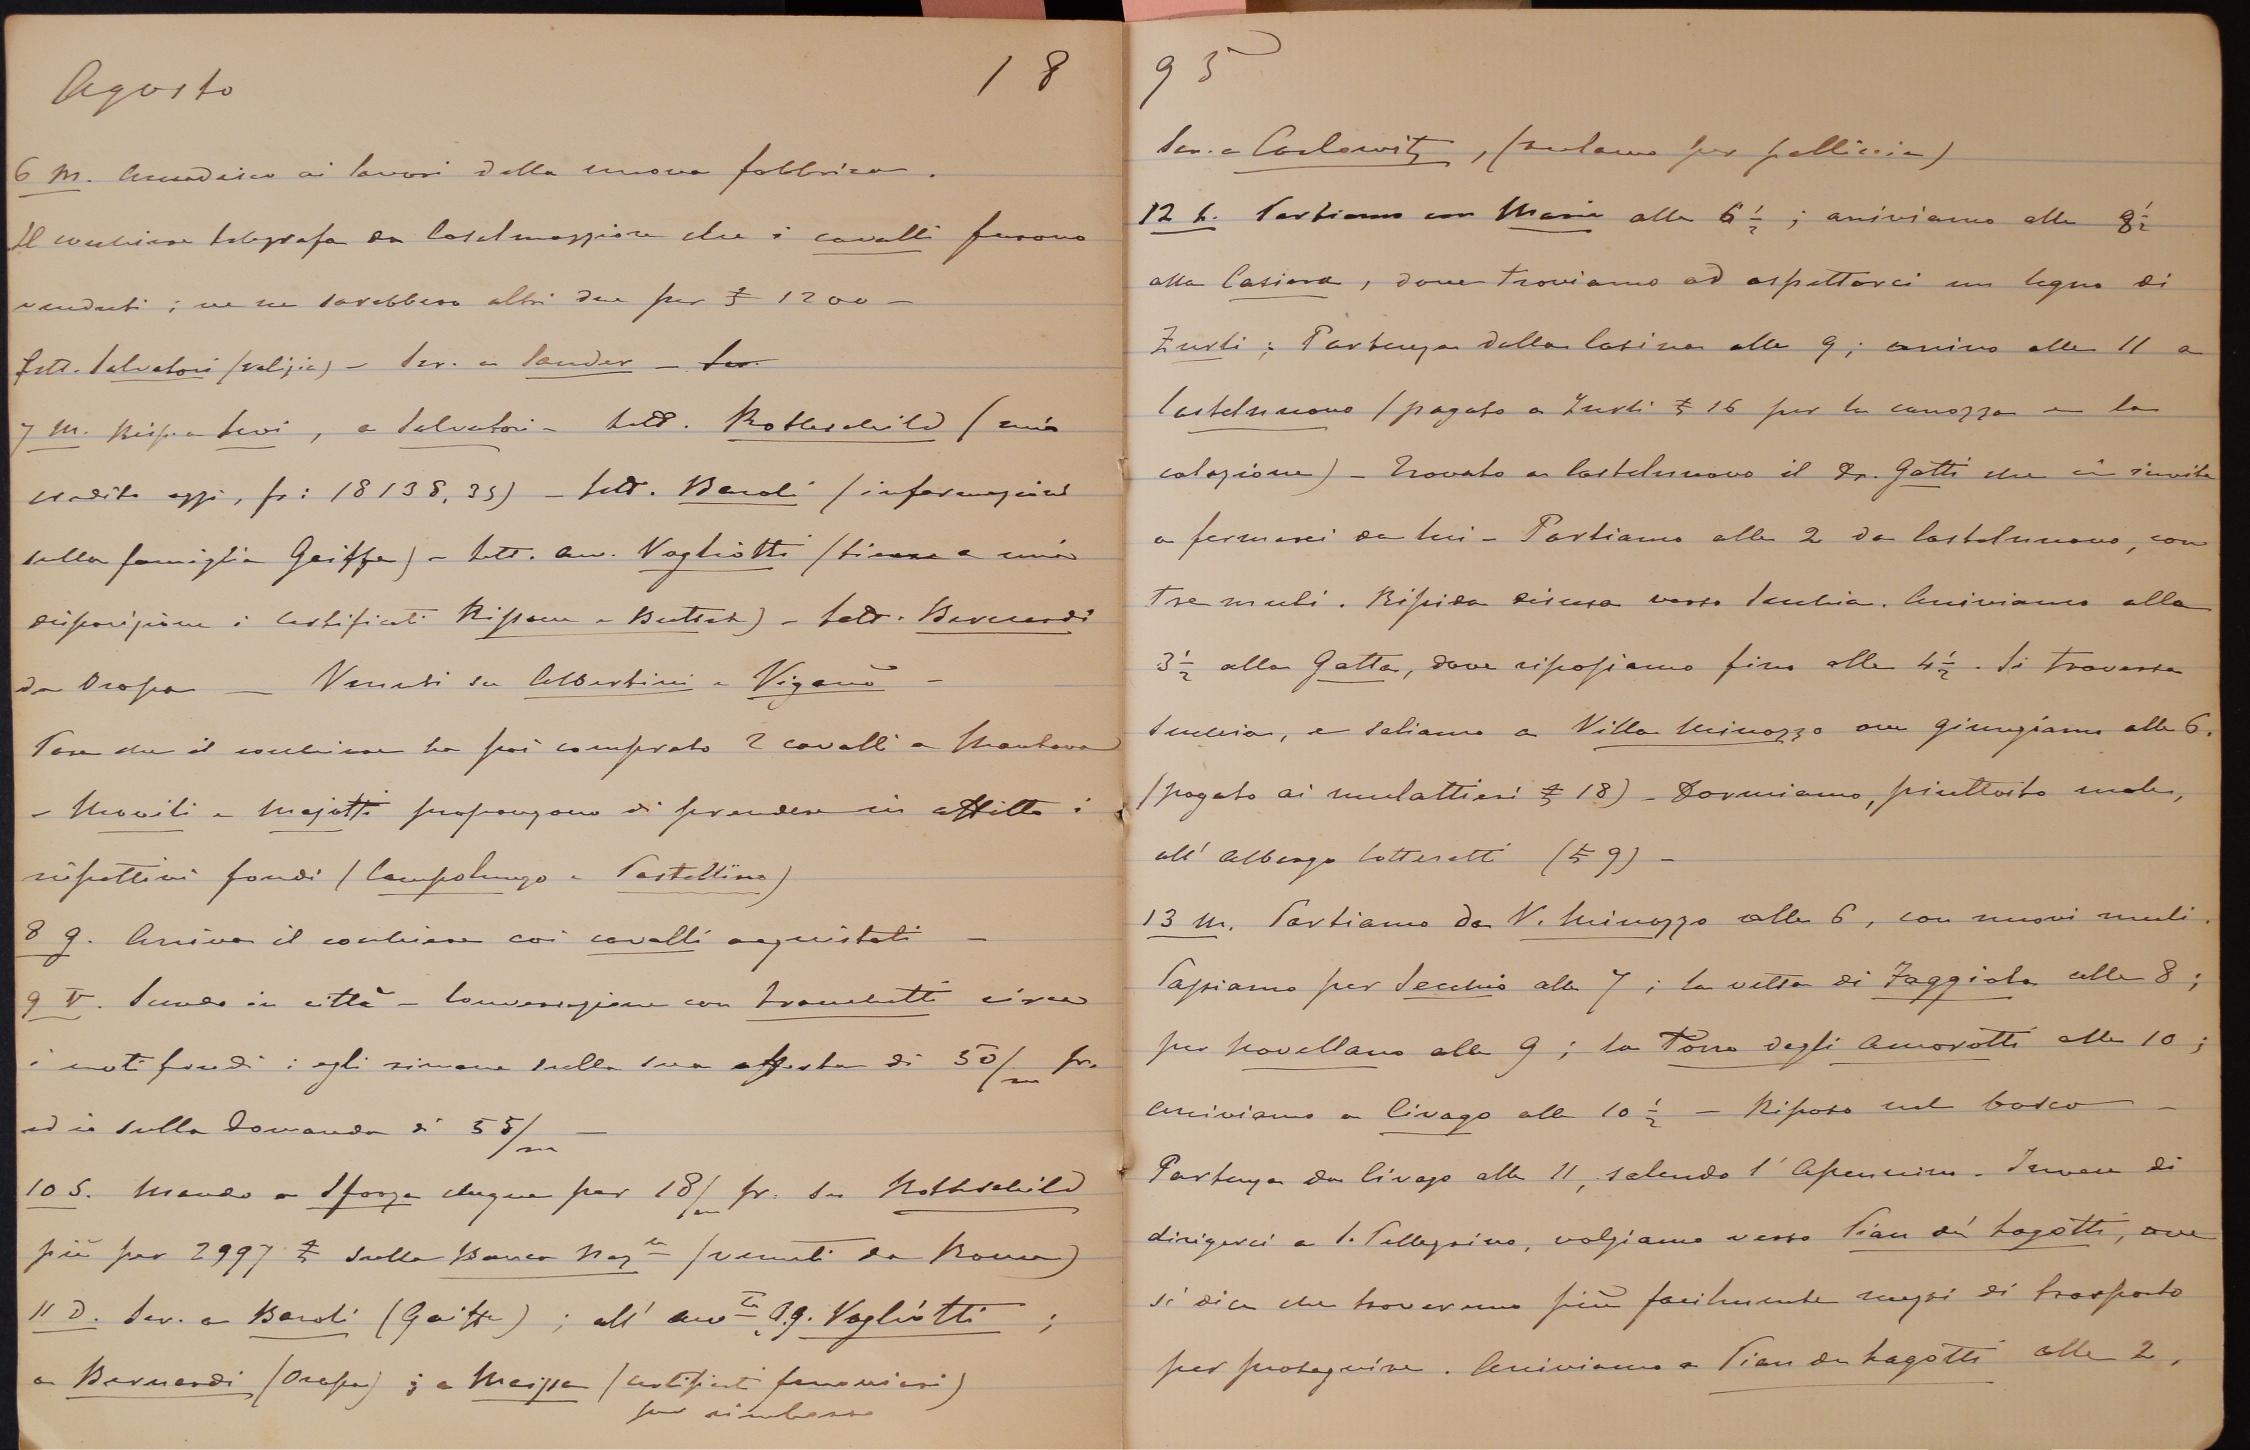 Agosto 18
6 M. Accudisco ai lavori della nuova fabbrica.
Il cocchiere telegrafa da Castelmaggiore che i cavalli furono
venduti; ve ne sarebbero altri due per £ 1200 -
Lett. Salvatori (valigia) - Scr. a Sander -
7 M. Risp. a Levi, a Salvatori - Lett. Rothschild (mio
credito oggi, fr: 18138,35) - Lett. Baroli (informazioni
sulla famiglia Gaiffe) - Lett. avv. Vogliotti (tiene a mia
disposizione i certificati Rissone e Buttet) - Lett. Bernardi
da Oropa — Venuti su Albertini e Viganò -
Pare che il cocchiere ha poi comprato 2 cavalli a Mantova
- e Majotti propongono di prendere in affitto i
rispettivi fondi (Campolungo e Pastellino)
8 G. Arriva il cocchiere coi cavalli acquistati -
9 V. Scendo in città - Conversazione con Franchetti circa
i noti fondi: egli rimane sulla sua offerta di 50/m fr.
ed io sulla domanda di 55/m —
10 S. Mando a Sforza chèque per 18/m fr. su Rothschild
più per 2997 £ sulla Banca Naz.le (venuti da Roma)
11 D. Scr. a Baroli (Gaiffe); all' avv.to G.G. Vogliotti;
a Bernardi (Oropa); a Massa (certificati ferroviari)
per rimborso
95
Scr. a Carlowitz, (reclamo per pelliccia)
12 L. Partiamo con Maria alle 6 1/2; arriviamo alle 8 1/2
alla Casina, dove troviamo ad aspettarci un legno di
Zurli; Partenza dalla Casina alle 9; arrivo alle 11 a
Castelnuovo (pagato a Zurli £ 16 per la carrozza e la
colazione) - Trovato a Castelnuovo il Dr. Gatti che ci invita
a fermarci da lui - Partiamo alle 2 da Castelnuovo, con
tre muli. Ripida discesa verso Secchia. Arriviamo alla
3 1/2 alla Gatta, dove riposiamo fino alle 4 1/2. Si traversa
Secchia, e saliamo a Villa Minozzo ove giungiamo alle 6.
(pagato ai mulattieri £ 18) - Dormiamo, piuttosto male,
all' albergo (£ 9) -
13 M. Partiamo da V. Minozzo alle 6, con nuovi muli.
Passiamo per Secchio alle 7; la vetta di Zaggiola alle 8;
per Novellano alle 9; la Torre degli Amorotti alle 10;
arriviamo a Civago alle 10 1/2 - Riposo nel bosco -
Partenza da Civago alle 11, salendo l'Apennino. Invece di
dirigerci a S. Pellegrino, volgiamo verso Pian de' Lagotti, ove
si dice che troveremo più facilmente mezzi di trasporto
per proseguire. Arriviamo a Pian de Lagotti alle 2,